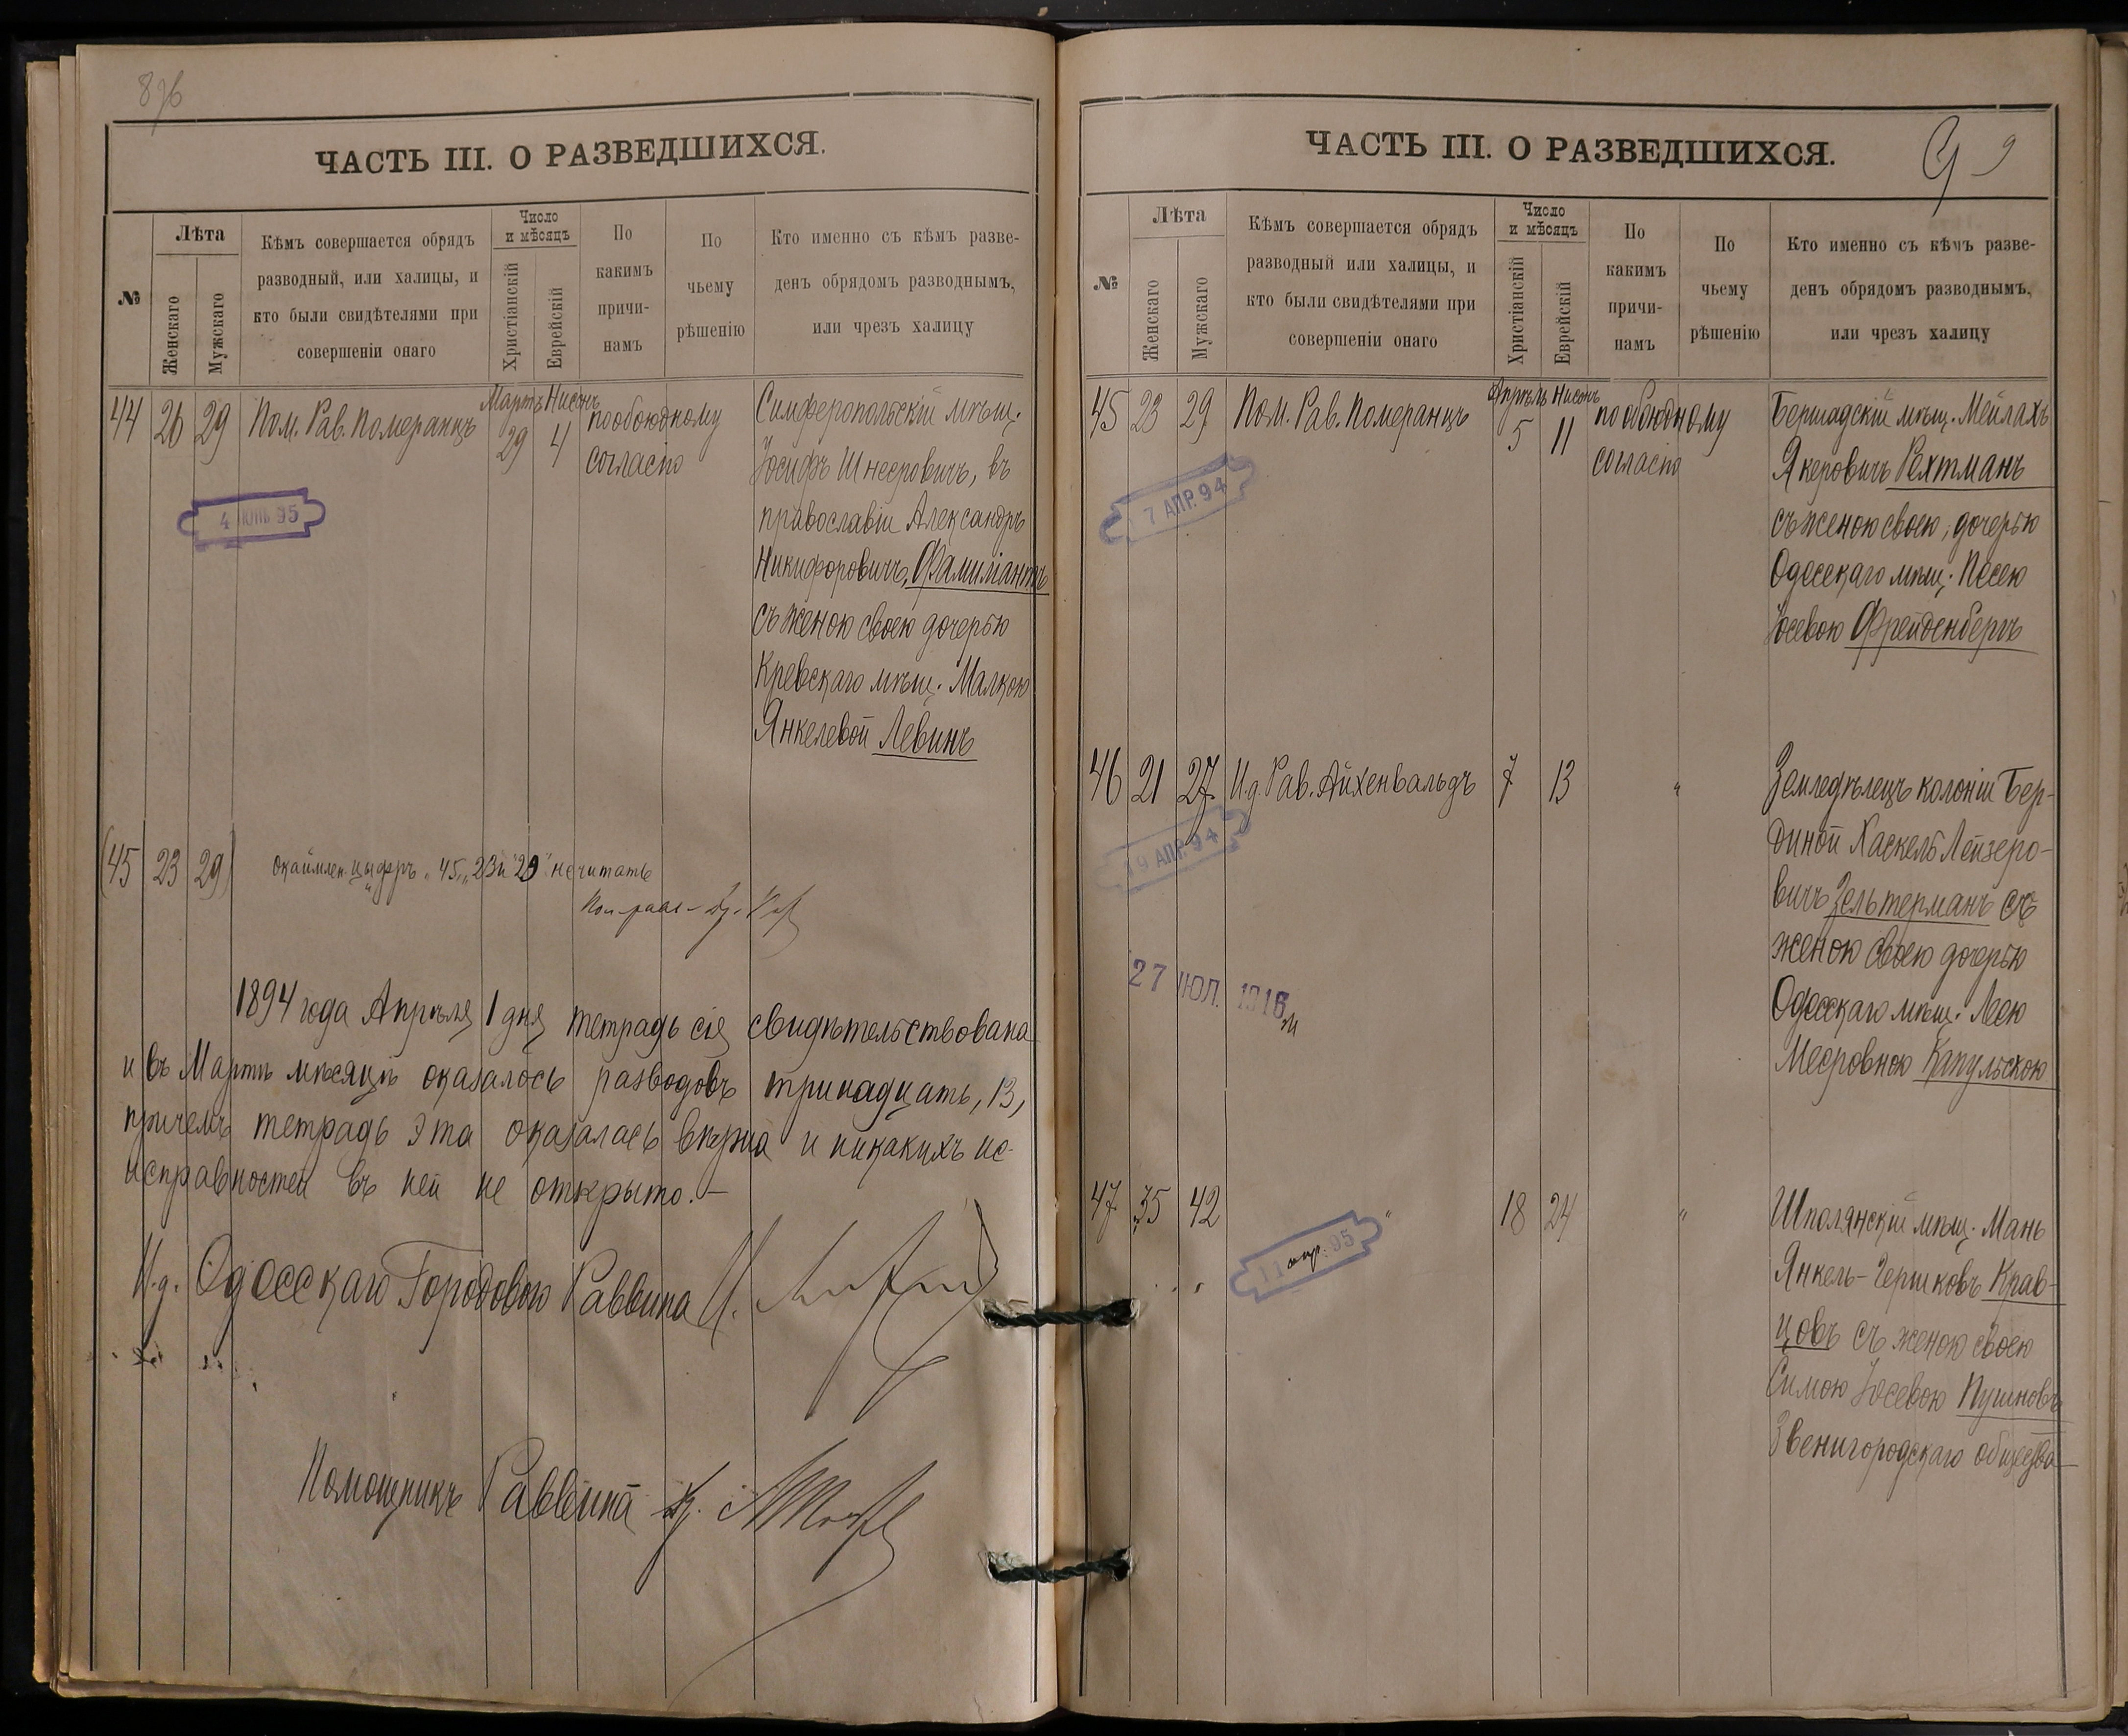 896
ЧАСТЬ III. О РАЗВЕДШИХСЯ.
№
Лѣта
Женскаго
Мужскаго
Кѣмъ совершается обрядъ
разводный, или халицы, и
кто были свидѣтелями при
совершеніи онаго
Число
и мѣсяцъ
Христіанскій
Еврейскій
По
какимъ
причи-
намъ
По
чьему
рѣшенію
Кто именно съ кѣмъ разве-
денъ обрядомъ разводнымъ,
или чрезъ халицу
44 26 29 Пом. Рав. Померанцъ
Мартъ 29
Нисонъ 4
по обоюдному
согласію
Симферопольскій мѣщ.
Іосифъ Шнееровичъ, въ
православіи Александръ
Никифоровичъ,
съ женою своею дочерью
Кревскаго мѣщ. Малкою
Янкелевой Левинъ
4 ІЮН 95
(45 23 29)
окаймлен. цыфръ „45„ „23 и "29" не читать
1894 года Апрѣля 1 дня тетрадь сія свидѣтельствована
и въ Мартѣ мѣсяцѣ оказалось разводовъ тринадцать, 13,
причемъ тетрадь эта оказалась вѣрна и никакихъ не-
исправностей въ ней не открыто.-
И.д. Одесскаго Городового Раввина
Помощникъ Раввина
ЧАСТЬ III. О РАЗВЕДШИХСЯ.
9 9
№
Лѣта
Женскаго
Мужскаго
Кѣмъ совершается обрядъ
разводный или халицы, и
кто были свидѣтелями при
совершеніи онаго
Число
и мѣсяцъ
Христіанскій
Еврейскій
По
какимъ
причи-
намъ
По
чьему
рѣшенію
Кто именно съ кѣмъ разве-
денъ обрядомъ разводнымъ,
или чрезъ халицу
45 23 29 Пом. Рав. Померанцъ
Апрѣль 5
Нисонъ 11
по обоюдному
согласію
Бершадскій мѣщ. Мейлахъ
Якеровичъ Рехтманъ
съ женою своею, дочерью
Одесскаго мѣщ. Песею
Іосевою Фрейденбергъ
17 АПР. 94
46 21 27 И.д. Рав. Айхенвальдъ 7 13 "
Земледѣлецъ колоніи Бер-
диной Хаскель Лейзеро-
вичъ Зельтерманъ съ
женою своею дочерью
Одесскаго мѣщ. Леею
Меєровною Капульскою
19 АПР. 94
27 ІЮЛ. 1916
47 35 42 " 18 24 "
Шполянскій мѣщ. Мань
Янкель-Гершковъ Крав-
цовъ съ женою своею
Симою Іосевою Пушновъ
Звенигородскаго общества
11 апр. 95